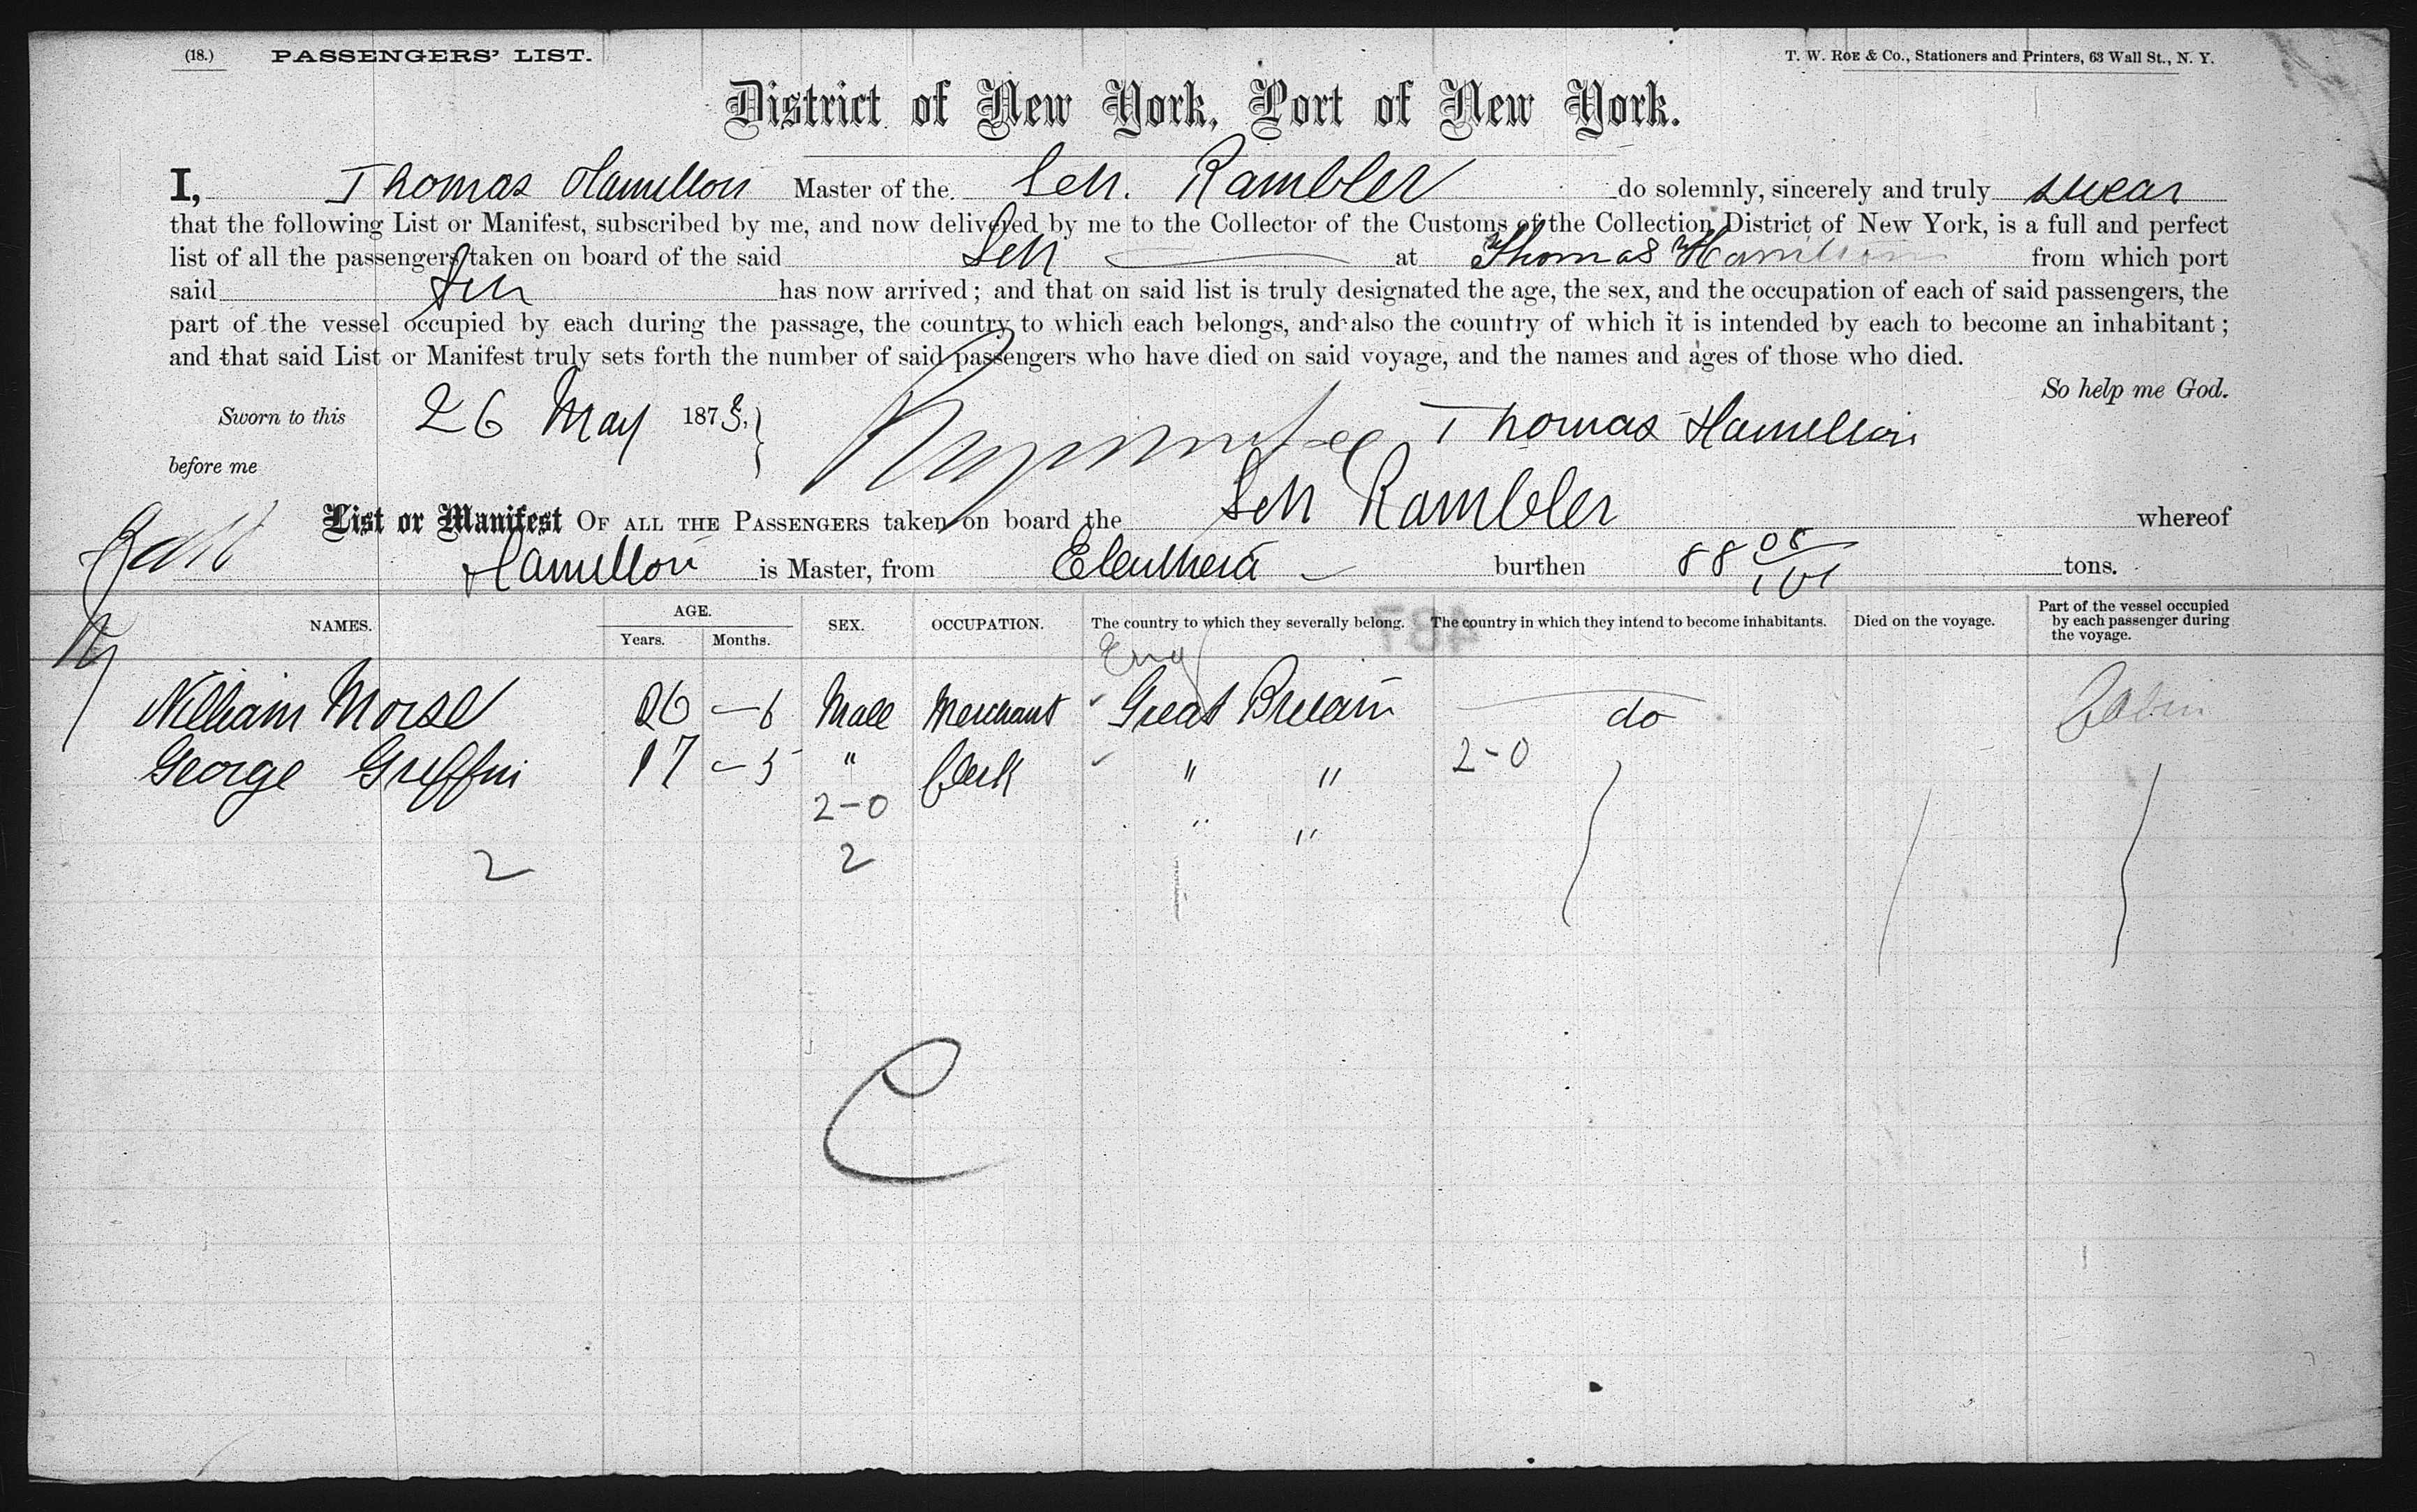 (18.) PASSENGERS' LIST. T. W. ROE & Co., Stationers and Printers, 63 Wall St., N. Y.
District of New York, Port of New York.
I, Thomas Hamilton Master of the Sch. Rambler do solemnly, sincerely and truly swear
that the following List or Manifest, subscribed by me, and now delivered by me to the Collector of the Customs of the Collection District of New York, is a full and perfect
list of all the passengers taken on board of the said Sch at Thomas Hamilton from which port
said Sch has now arrived; and that on said list is truly designated the age, the sex, and the occupation of each of said passengers, the
part of the vessel occupied by each during the passage, the country to which each belongs, and also the country of which it is intended by each to become an inhabitant;
and that said List or Manifest truly sets forth the number of said passengers who have died on said voyage, and the names and ages of those who died.
So help me God.
Sworn to this 26 May 187 Thomas Hamilton
before me
List or Manifest OF ALL THE PASSENGERS taken on board the Sch Rambler whereof
Hamilton is Master, from Eleuthera burthen 88 08/101 tons.
NAMES. AGE. Years. Months. SEX. OCCUPATION. The country to which they severally belong. The country in which they intend to become inhabitants. Died on the voyage. Part of the vessel occupied by each passenger during the voyage.
467
Eng
William Morse 26 - 6 Male Merchant Great Britain do Cabin
George Griffin 17 - 5 " Clerk " " 2-0
2-0 " "
2 2
C